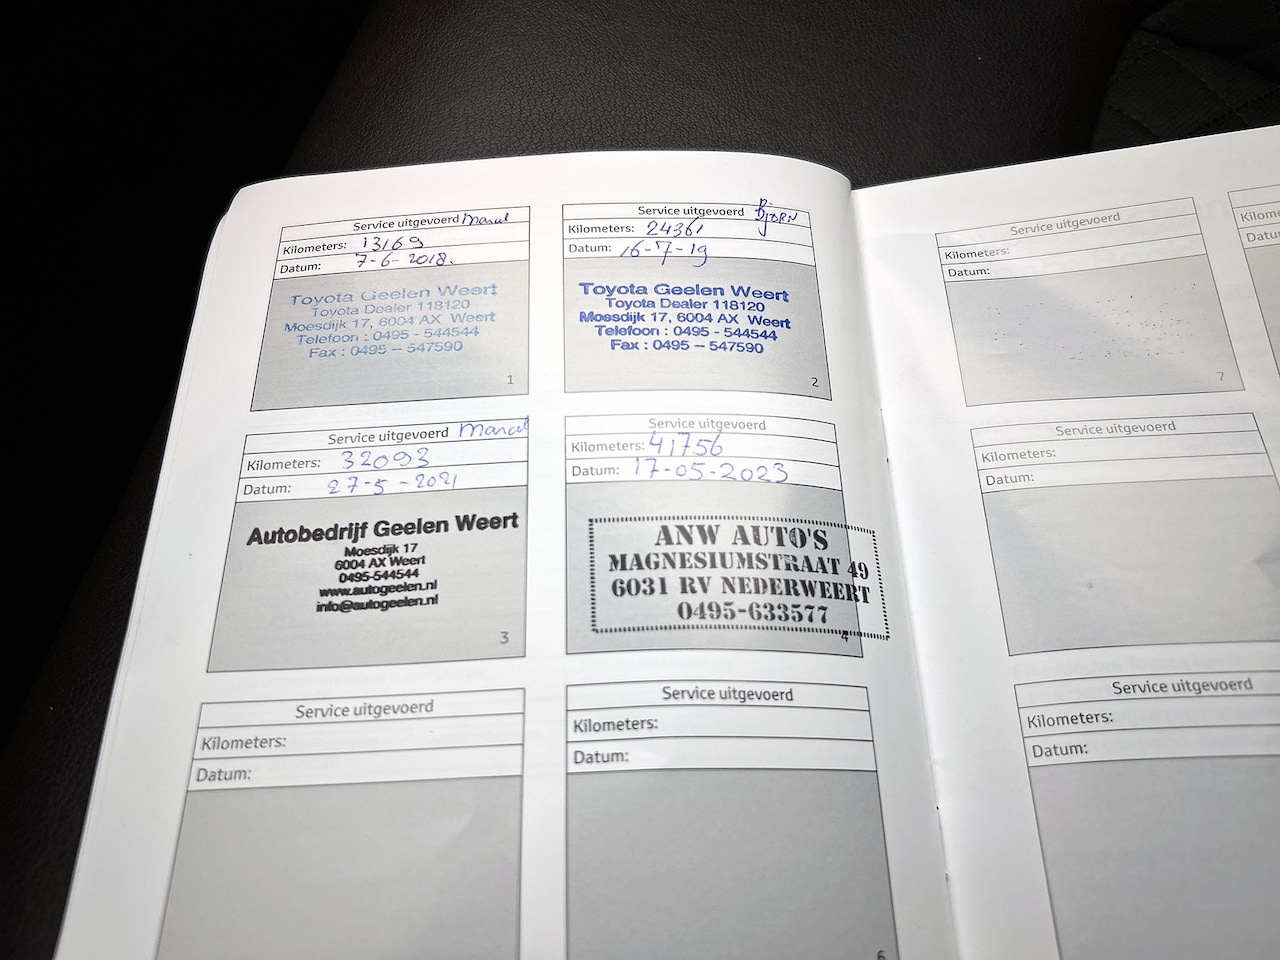 Service uitgevoerd Marcel
Kilometers: 13169
Datum: 7-6-2018.
Toyota Geelen Weert
Toyota Dealer 118120
Moesdijk 17, 6004 AX Weert
Telefoon : 0495 - 544544
Fax : 0495 – 547590
1
Service uitgevoerd BJORN
Kilometers: 24361
Datum: 16-7-19
Toyota Geelen Weert
Toyota Dealer 118120
Moesdijk 17, 6004 AX Weert
Telefoon : 0495 - 544544
Fax : 0495 – 547590
2
Service uitgevoerd Marcel
Kilometers: 32093
Datum: 27-5-2021
Autobedrijf Geelen Weert
Moesdijk 17
6004 AX Weert
0495-544544
www.autogeelen.nl
info@autogeelen.nl
3
Service uitgevoerd
Kilometers: 41756
Datum: 17-05-2023
ANW AUTO'S
MAGNESIUMSTRAAT 49
6031 RV NEDERWEERT
0495-633577
4
Service uitgevoerd
Kilometers:
Datum:
Service uitgevoerd
Kilometers:
Datum:
6
Service uitgevoerd
Kilometers:
Datum:
7
Service uitgevoerd
Kilometers:
Datum:
Service uitgevoerd
Kilometers:
Datum: